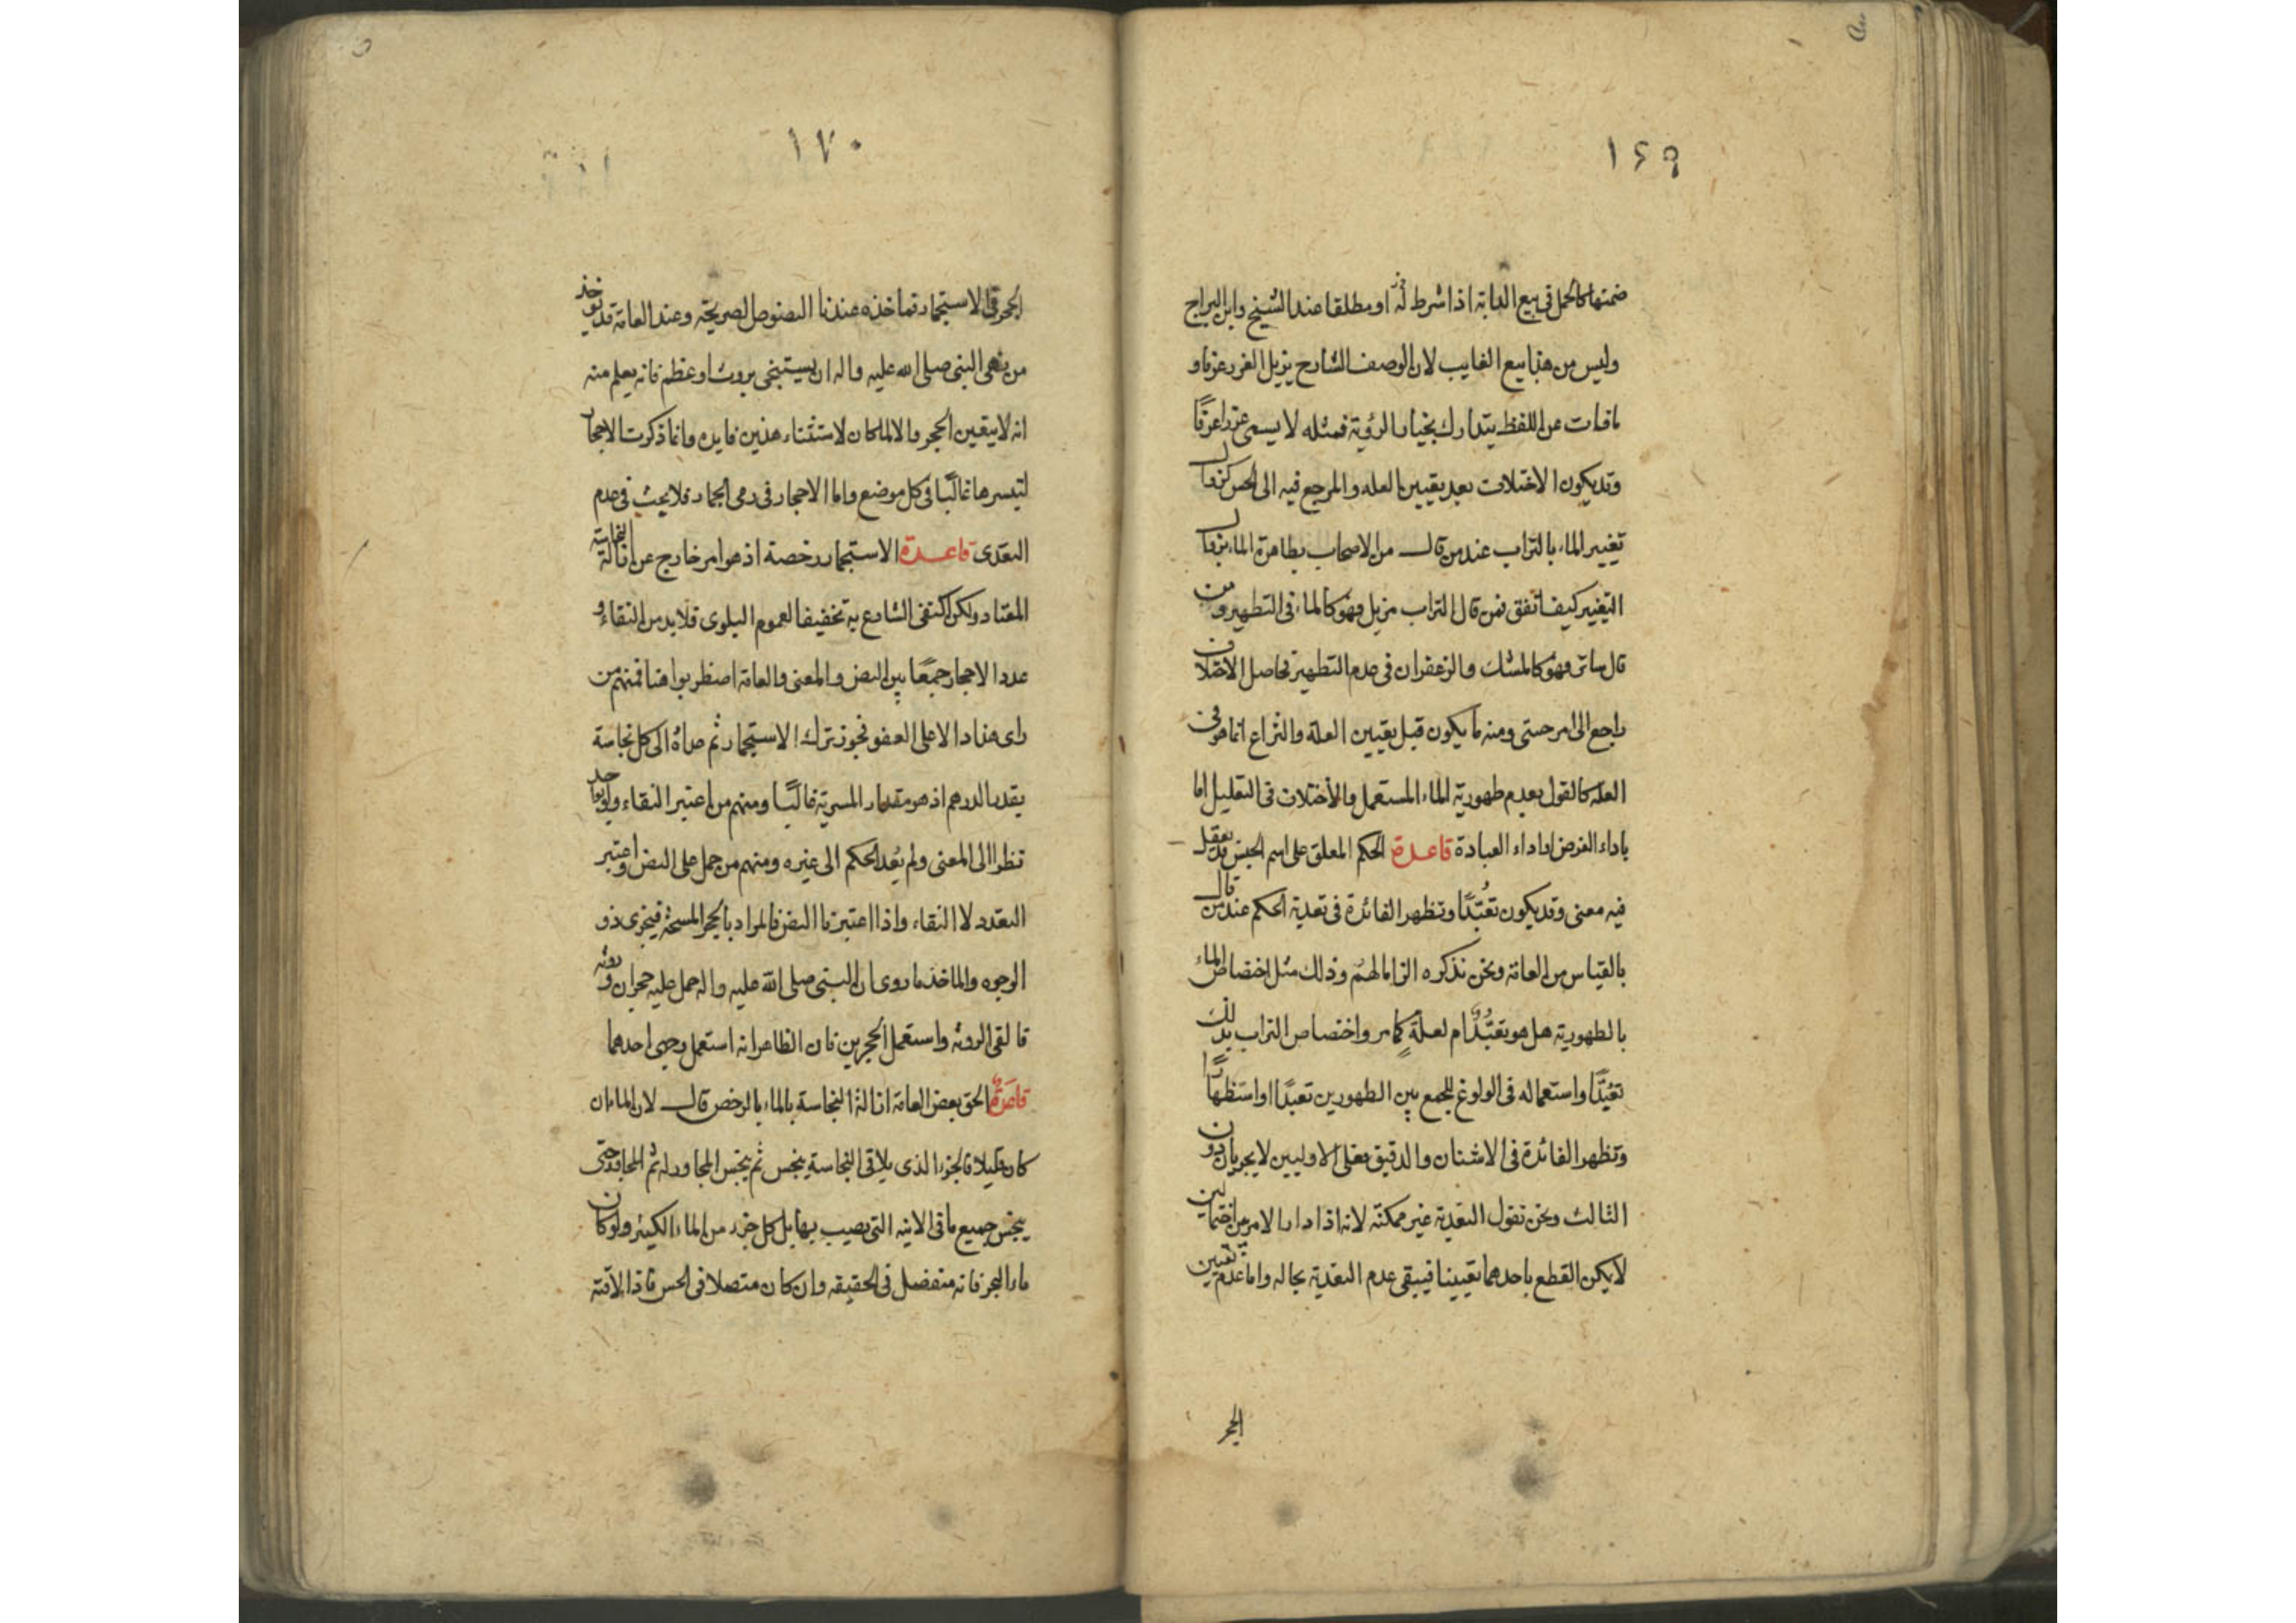 ١٦٩
ضمتها كالحمل في بيع الدابة اذا شرط له او مطلقا عند الشيخ وابن البراج
وليس من هذا بيع الغايب لان الوصف الشارح يزيل الغرر عرفا و
مافات من اللفظ يتدارك بخيار الرؤية فمثله لا يسمى غررا عرفًا
وقد يكون الاختلاف بعد تعيين العله والمرجع فيه الى الحس كزوال
تغيير الماء بالتراب عند من قال من الاصحاب بطهارة الماء بزوال
التغيير كيف اتفق فمن قال التراب مزيل فهو كالماء في التطهير ومن
قال ساتر فهو كالمسك والزعفران في عدم التطهير فحاصل الاختلاف
راجع الى امر حسي ومنه ما يكون قبل تعيين العلة والنزاع انما هو في
العله كالقول بعدم طهورية الماء المستعمل والاختلاف في التعليل اما
باداء الفرض او اداء العبادة قاعدة الحكم المعلق على اسم الجنس قد يعقل
فيه معنى وقد يكون تعبّدًا وتظهر الفائدة في تعدية الحكم عند من قال
بالقياس من العامة ونحن نذكره الزاما لهم وذلك مثل اختصاص الماء
بالطهورية هل هو تعبّدٌ ام لعلةٍ كما مر واختصاص التراب بذلك
تعبّدًا واستعماله في الولوغ للجمع بين الطهورين تعبدًا او استظهارًا
وتظهر الفائدة في الاشنان والدقيق فعلى الاوليين لا يجريان دون
الثالث ونحن نقول التعدية غير ممكنة لانه اذا دار الامر بين احتمالين
لا يمكن القطع باحدهما تعيينا فيبقى عدم التعدية بحاله واما عدم تعيين
الحجر
١٧٠
الحجر في الاستجمار فماخذه عندنا النصوص الصريحة وعند العامة قد يوخذ
من نهي النبي صلى الله عليه واله ان يستنجى بروث او عظم فانه يعلم منه
انه لا يتعين الحجر والا لما كان لاستثناء هذين فايده وانما ذكرت الاحجار
لتيسرها غالبًا في كل موضع واما الاحجار في رمي الجمار فلا بحث في عدم
التعدى قاعدة الاستجمار رخصة اذ هو امر خارج عن ازالة النجاسة
المعتاد ولكن اكتفى الشارع به تخفيفا لعموم البلوى فلابد من النقاء و
عدد الاحجار جمعًا بين النص والمعنى والعامة اضطربوا هنا فمنهم من
راى هذا دالا على العفو فجوز ترك الاستجمار ثم عداه الى كل نجاسة
بقدر الدرهم اذ هو مقدار المسربة غالبًا ومنهم من اعتبر النقاء ولو بواحد
نظرا الى المعنى ولم يُعد الحكم الى غيره ومنهم من حمل على النص واعتبر
التعدد لا النقاء واذا اعتبرنا النص فالمراد بالحجر المسحة فيجزى ذو
الوجوه والماخذ ما روى ان النبى صلى الله عليه واله حمل عليه حجران وروثه
فالقى الروثه واستعمل الحجرين فان الظاهر انه استعمل وجهى احدهما
قاعدةٌ الحق بعض العامة ازالة النجاسة بالماء بالرخص قال لان الماء ان
كان قليلا فالجزء الذى يلاقى النجاسة ينجس ثم ينجس المجاور له ثم المجاور حتى
ينجس جميع ما في الانيه التى يصيب بها بل كل جزء من الماء الكثير ولو كان
ماء البحر فانه منفصل في الحقيقه وان كان متصلا في الحس فاذا لاقته